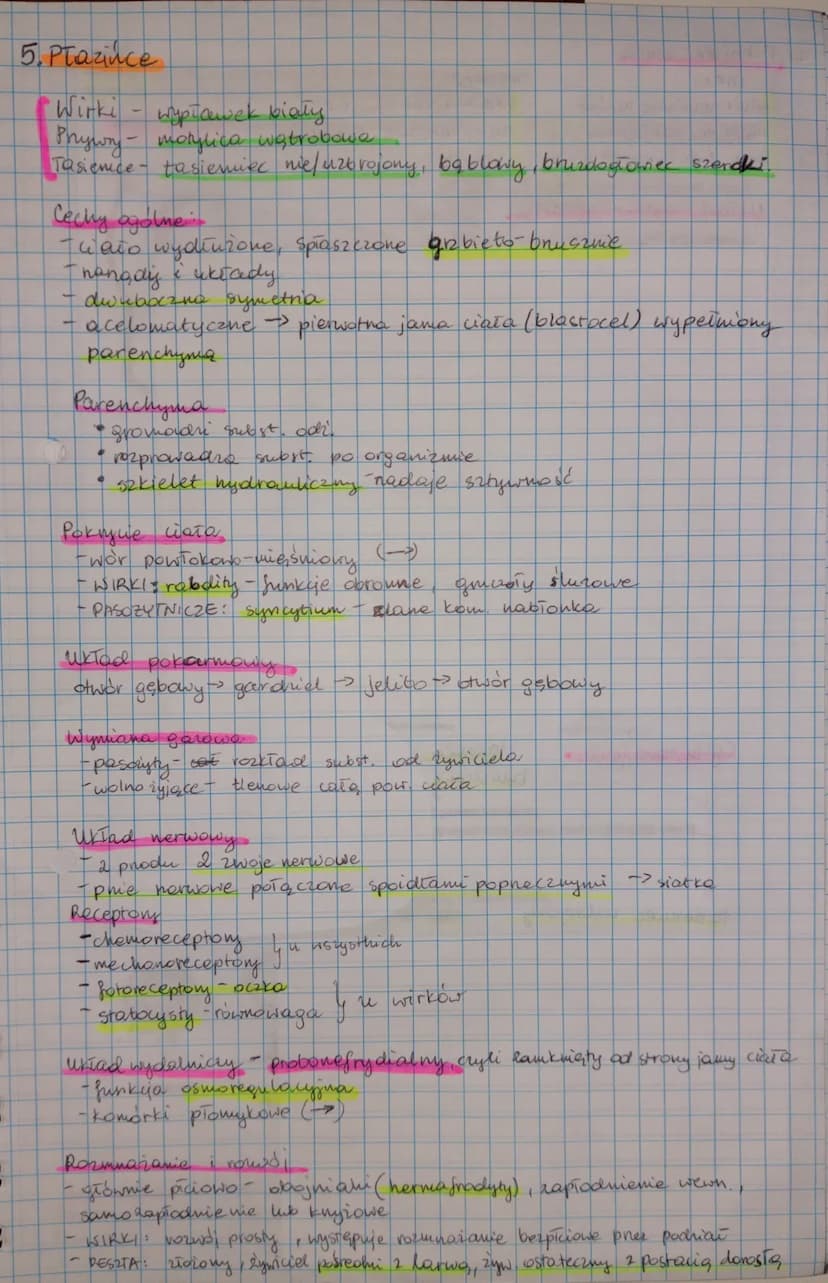 5. Płazińce
Wirki - wypławek biały
Przywry - motylica wątrobowa
Tasiemce - tasiemiec nie/uzbrojony, bąblowy, bruzdogłowiec szeroki.
Cechy ogólne:
- ciało wydłużone, spłaszczone grzbieto-brzusznie
- narządy i układy
- dwuboczna symetria
- acelomatyczne → pierwotna jama ciała (blastocel) wypełniony
parenchymą
Parenchyma
• gromadzi subst. odż.
• rozprowadza subst. po organizmie
• szkielet hydrauliczny - nadaje sztywność
Pokrycie ciała
- wór powłokowo-mięśniowy (→)
- WIRKI: rabdity - funkcje obronne, gruczoły śluzowe
- PASOŻYTNICZE: syncytium - zlane kom. nabłonka
Układ pokarmowy
otwór gębowy → gardziel → jelito → otwór gębowy
Wymiana gazowa
- pasożyty - rozkład subst. od żywiciela
- wolno żyjące - tlenowe całą pow. ciała
Układ nerwowy
- z przodu 2 zwoje nerwowe
- pnie nerwowe połączone spoidłami poprzecznymi → siatka
Receptory
- chemoreceptory
- mechanoreceptory } u wszystkich
- fotoreceptory - oczka
- statocysty - równowaga } u wirków
Układ wydalniczy - protonefrydialny, czyli zamknięty od strony jamy ciała
- funkcja osmoregulacyjna
- komórki płomykowe (→)
Rozmnażanie i rozwój
- głównie płciowo - obojniaki (hermafrodyty), zapłodnienie wewn.,
samozapłodnienie lub krzyżowe
- WIRKI: rozwój prosty, występuje rozmnażanie bezpłciowe przez podział
- RESZTA: złożony, żywiciel pośredni z larwą, żyw. ostateczny z postacią dorosłą